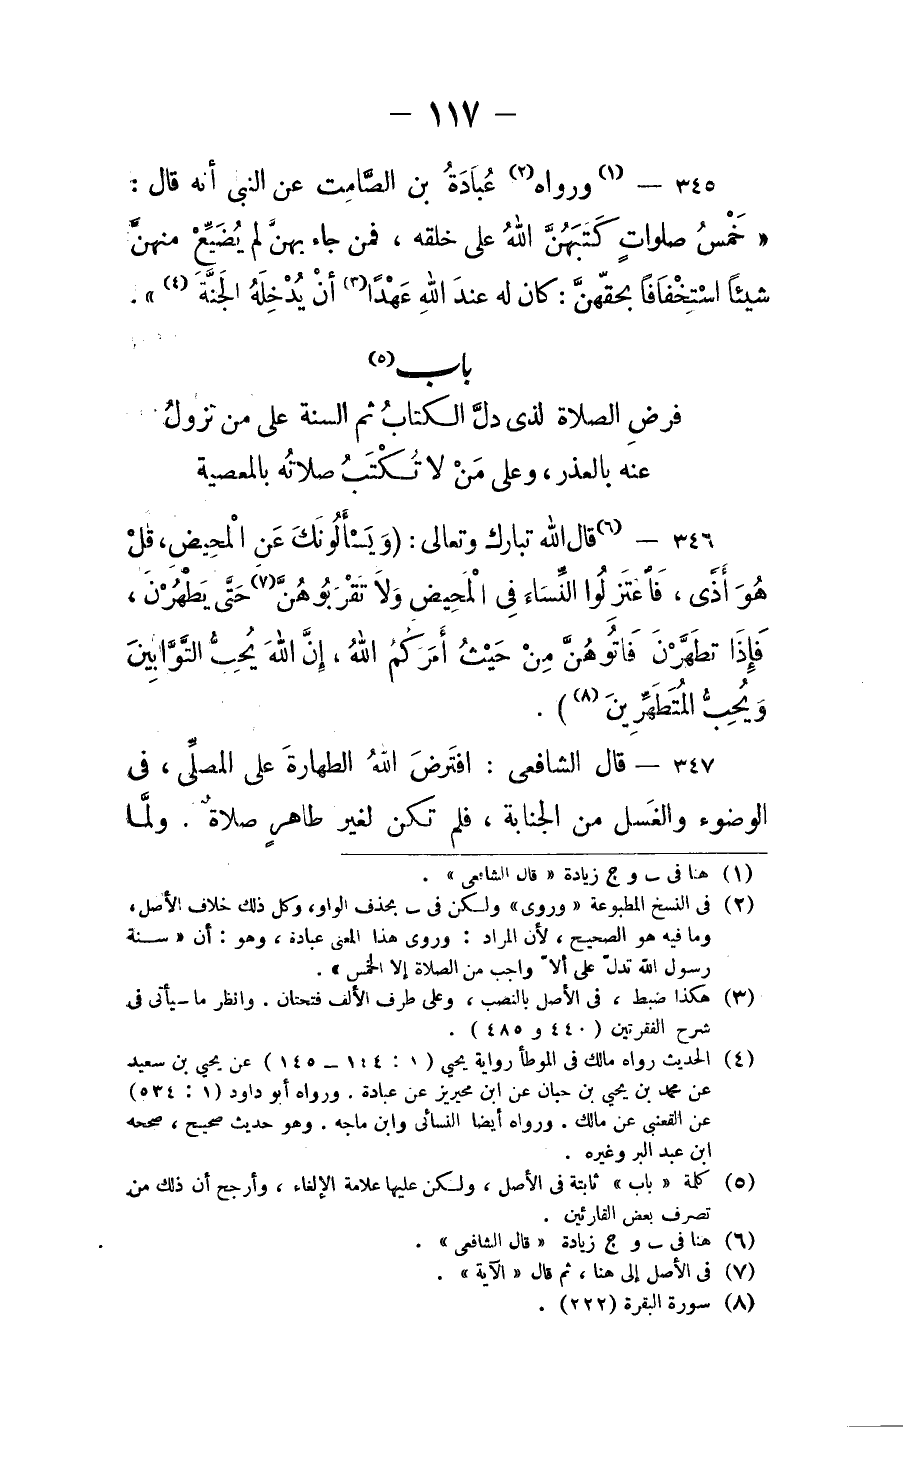 — ١١٧ —
٣٤٥ — (١) ورواه(٢) عُبَادَةُ بن الصَّامِت عن النبي أنه قال :
« خَمْسُ صلواتٍ كَتَبَهُنَّ اللهُ على خلقه ، فمن جاء بهنَّ لم يُضَيِّعْ منهنَّ
شيئاً اسْتِخْفَافاً بحقّهنَّ : كان له عندَ اللهِ عَهْدًا(٣) أنْ يُدْخِلَهُ الجَنَّةَ (٤) » .
باب(٥)
فرضِ الصلاة لذى دلَّ الكتابُ ثم السنة على من تزولُ
عنه بالعذر ، وعلى مَنْ لا تُكْتَبُ صلاتُه بالمعصية
٣٤٦ — (٦)قال الله تبارك وتعالى : ( وَيَسْأَلُونَكَ عَنِ الْمَحِيضِ ، قُلْ
هُوَ أَذًى ، فَاعْتَزِلُوا النِّسَاءَ فِى الْمَحِيضِ وَلاَ تَقْرَبُوهُنَّ(٧) حَتَّى يَطْهُرْنَ ،
فَإِذَا تَطَهَّرْنَ فَاتُوهُنَّ مِنْ حَيْثُ أَمَرَكُمُ اللهُ ، إِنَّ اللهَ يُحِبُّ التَّوَّابِينَ
وَيُحِبُّ المُتَطَهِّرِينَ (٨) ) .
٣٤٧ — قال الشافعى : افتَرضَ اللهُ الطهارةَ على المصلِّى ، فى
الوضوء والغَسل من الجنابة ، فلم تكن لغير طاهرٍ صلاةٌ . ولمَّا
(١) هنا فى ب و ج زيادة « قال الشافعى » .
(٢) فى النسخ المطبوعة « وروى » ولكن فى ب بحذف الواو، وكل ذلك خلاف الأصل،
وما فيه هو الصحيح ، لأن المراد : وروى هذا المعنى عبادة ، وهو : أن « سنة
رسول الله تدلّ على ألاّ واجب من الصلاة إلا الخمس » .
(٣) هكذا ضبط ، فى الأصل بالنصب ، وعلى طرف الألف فتحتان . وانظر ما سيأتى فى
شرح الفقرتين ( ٤٤٠ و ٤٨٥ ) .
(٤) الحديث رواه مالك فى الموطأ رواية يحيى ( ١ : ١٤٤ — ١٤٥ ) عن يحيى بن سعيد
عن محمد بن يحيى بن حبان عن ابن محيريز عن عبادة . ورواه أبو داود (١ : ٥٣٤)
عن القعنبى عن مالك . ورواه أيضا النسائى وابن ماجه . وهو حديث صحيح ، صححه
ابن عبد البر وغيره .
(٥) كلمة « باب » ثابتة فى الأصل ، ولكن عليها علامة الإلغاء ، وأرجح أن ذلك من
تصرف بعض القارئين .
(٦) هنا فى ب و ج زيادة « قال الشافعى » .
(٧) فى الأصل إلى هنا ، ثم قال « الآية » .
(٨) سورة البقرة (٢٢٢) .